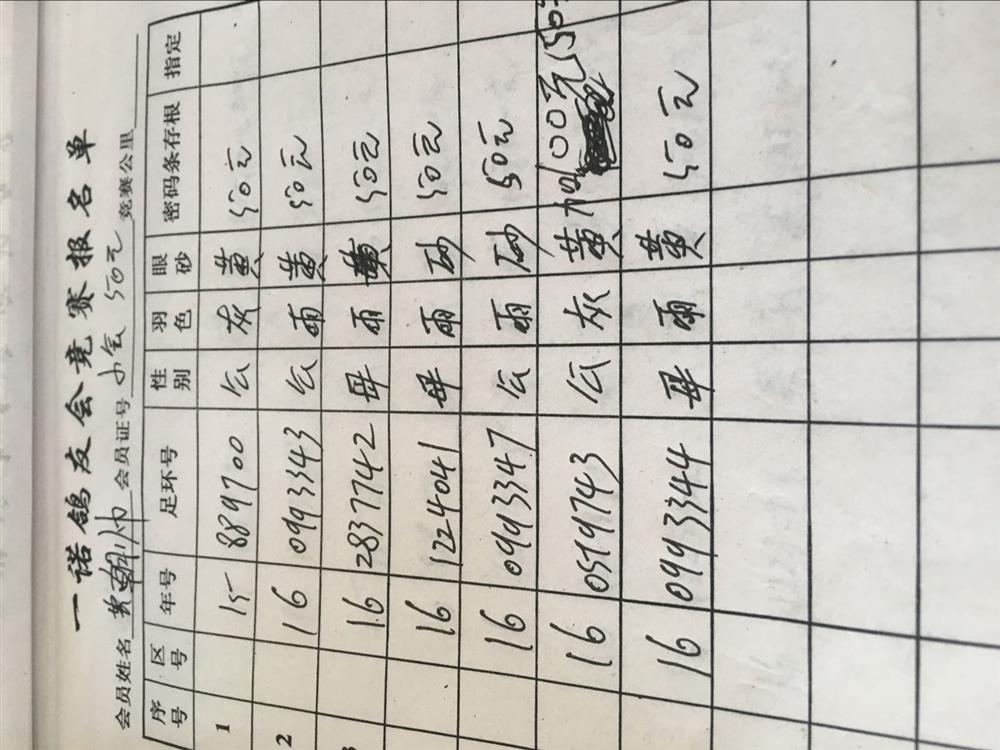 一诺鸽友会竞赛报名单
会员姓名 会员证号 50元 竞赛公里
序号 区号 年号 足环号 性别 羽色 眼砂 密码条存根 指定
1 15 889700 公 灰 黄 50元
2 16 0993343 公 雨 黄 50元
3 16 2837742 母 雨 黄 50元
16 1224041 母 雨 砂 50元
16 0993347 公 雨 砂 50元
16 0519743 公 灰 黄 加100元
16 0993344 母 雨 黄 50元